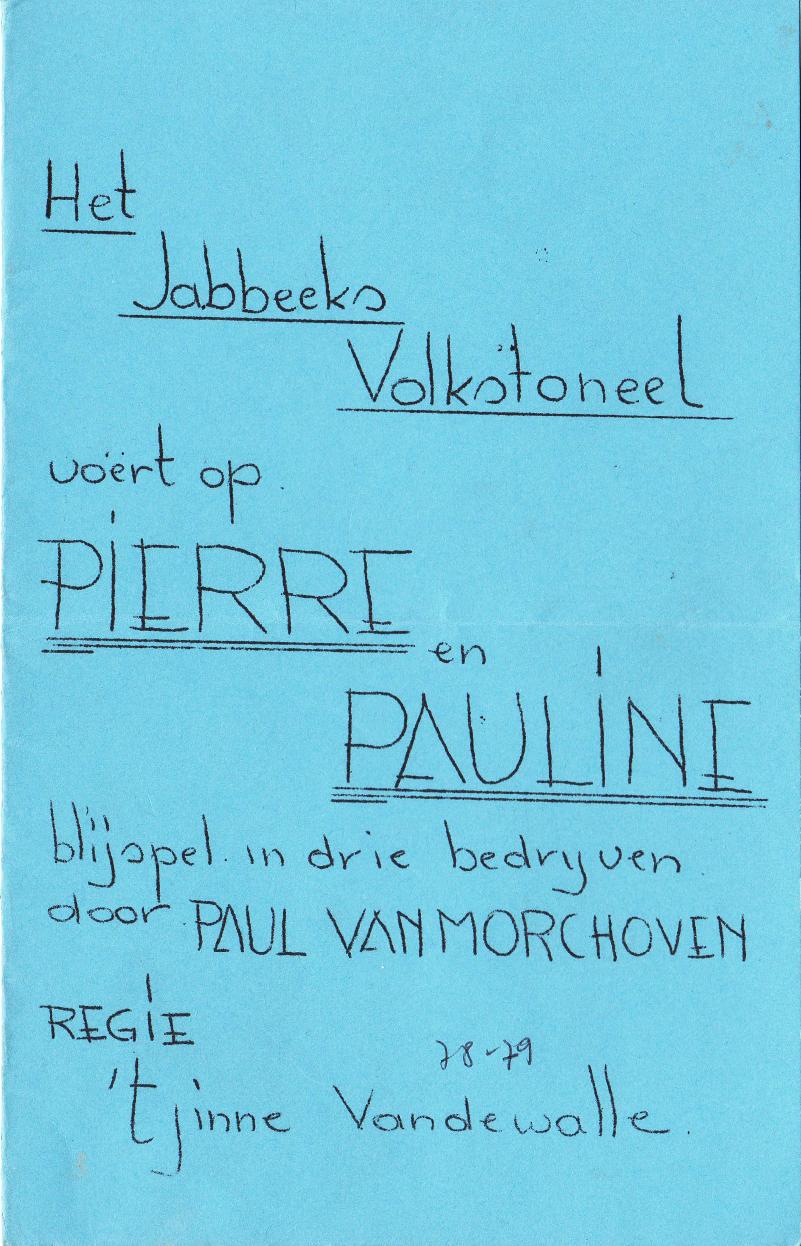 Het
Jabbeeks
Volkstoneel
voert op
PIERRE
en
PAULINE
blijspel in drie bedrijven
door PAUL VAN MORCHOVEN
REGIE
78-79
't jinne Vandewalle.